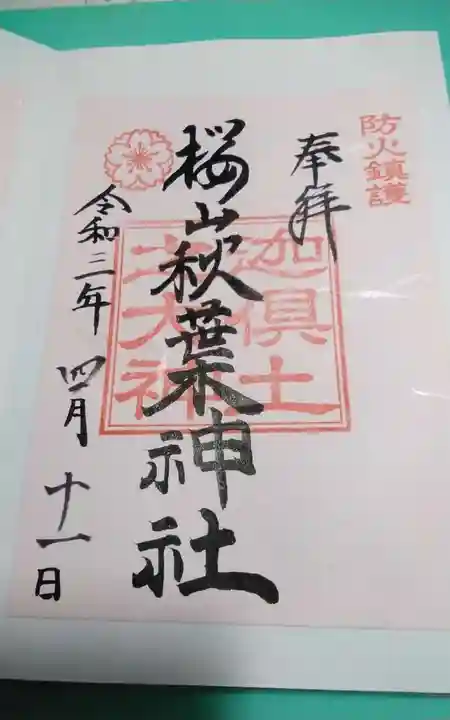 防火鎮護
奉拝
迦倶土
之大神
桜山秋葉神社
令和三年 四月 十一日